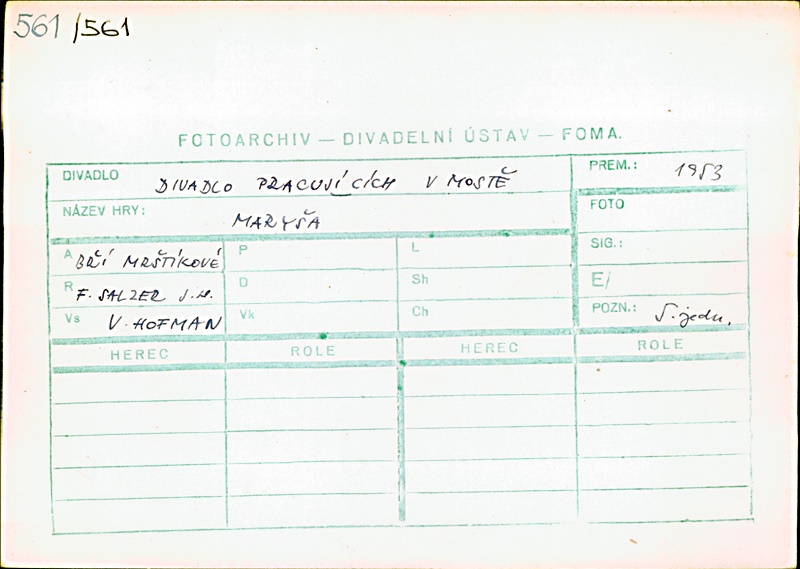 561 /561
FOTOARCHIV — DIVADELNÍ ÚSTAV — FOMA.
DIVADLO DIVADLO PRACUJÍCÍCH V MOSTĚ PREM.: 1953
NÁZEV HRY: MARYŠA FOTO
A BŘÍ MRŠTÍKOVÉ P L SIG.:
R F. SALZER J.H. D Sh E/
Vs V. HOFMAN Vk Ch POZN.: 5. jedn.
HEREC ROLE HEREC ROLE